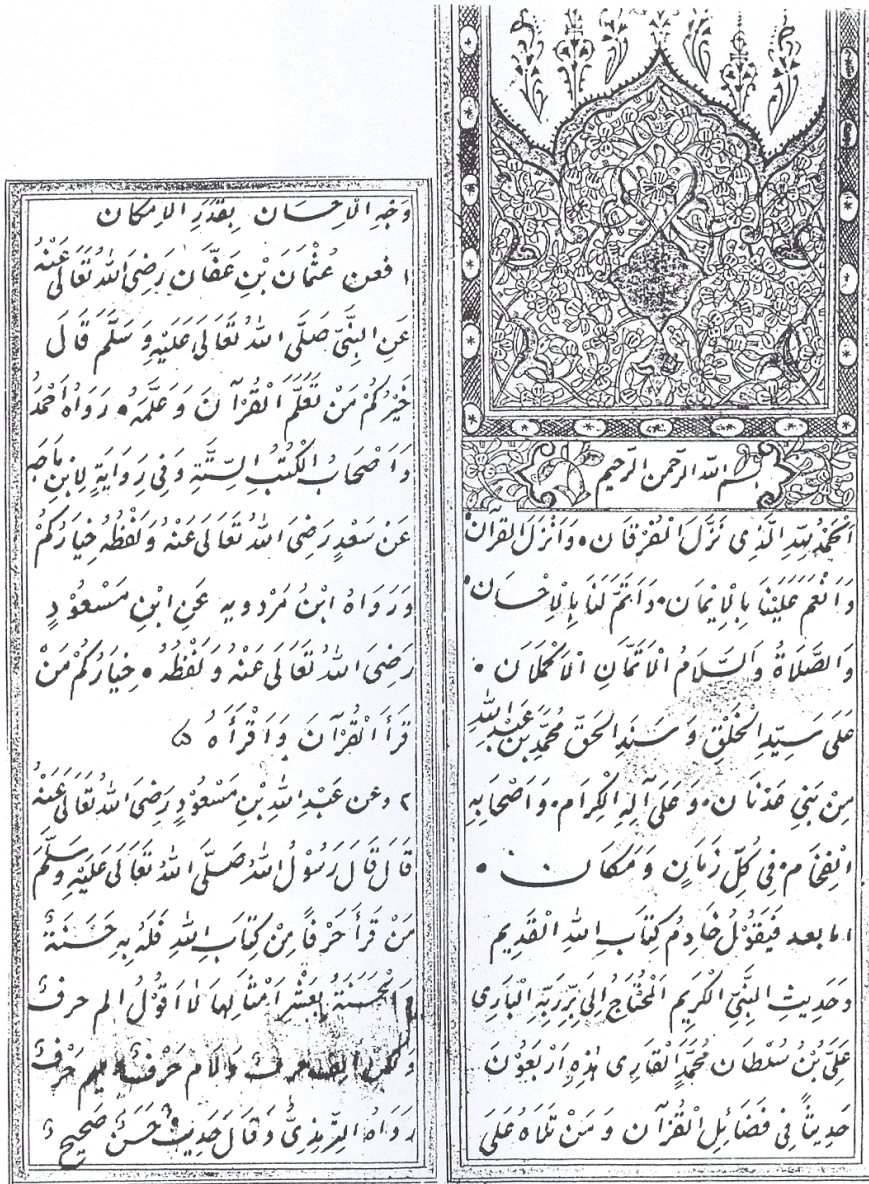 بسم الله الرحمن الرحيم
اَلْحَمْدُ لِلّٰهِ الَّذِى نَزَّلَ الْفُرْقَانَ وَاَنْزَلَ الْقُرْآنَ
وَاَنْعَمَ عَلَيْنَا بِالْاِيْمَانِ وَاَتَمَّ لَنَا بِالْاِحْسَانِ
وَالصَّلَاةُ وَالسَّلَامُ الْاَتَمَّانِ الْاَكْمَلَانِ
عَلَى سَيِّدِ الْخَلْقِ وَسَنَدِ الْحَقِّ مُحَمَّدِ بْنِ عَبْدِ اللّٰهِ
مِنْ بَنِى عَدْنَانَ وَعَلَى آلِهِ الْكِرَامِ وَاَصْحَابِهِ
الْفِخَامِ فِى كُلِّ زَمَانٍ وَمَكَانٍ
اما بعد فَيَقُوْلُ خَادِمُ كِتَابِ اللّٰهِ الْقَدِيمِ
وَحَدِيثِ النَّبِىِّ الْكَرِيمِ الْمُحْتَاجُ اِلَى بِرِّ رَبِّهِ الْبَارِى
عَلِىُّ بْنُ سُلْطَانِ مُحَمَّدٍ الْقَارِى هٰذِهِ اَرْبَعُوْنَ
حَدِيثاً فِى فَضَائِلِ الْقُرْآنِ وَمَنْ تَلَاهُ عَلَى
وَجْهِ الْاِحْسَانِ بِقَدَرِ الْاِمْكَانِ
١ فعن عُثْمَانَ بْنِ عَفَّانَ رَضِىَ اللّٰهُ تَعَالَى عَنْهُ
عَنِ النَّبِىِّ صَلَّى اللّٰهُ تَعَالَى عَلَيْهِ وَسَلَّمَ قَالَ
خَيْرُكُمْ مَنْ تَعَلَّمَ الْقُرْآنَ وَعَلَّمَهُ رَوَاهُ اَحْمَدُ
وَاَصْحَابُ الْكُتُبِ السِّتَّةِ وَفِى رِوَايَةٍ لِابْنِ مَاجَه
عَنْ سَعْدٍ رَضِىَ اللّٰهُ تَعَالَى عَنْهُ وَلَفْظُهُ خِيَارُكُمْ
وَرَوَاهُ ابْنُ مَرْدويه عَنِ ابْنِ مَسْعُوْدٍ
رَضِىَ اللّٰهُ تَعَالَى عَنْهُ وَلَفْظُهُ خِيَارُكُمْ مَنْ
قَرَأَ الْقُرْآنَ وَاَقْرَأَهُ
٢ وعن عَبْدِ اللّٰهِ بْنِ مَسْعُوْدٍ رَضِىَ اللّٰهُ تَعَالَى عَنْهُ
قَالَ قَالَ رَسُوْلُ اللّٰهِ صَلَّى اللّٰهُ تَعَالَى عَلَيْهِ وَسَلَّمَ
مَنْ قَرَأَ حَرْفاً مِنْ كِتَابِ اللّٰهِ فَلَهُ بِهِ حَسَنَةٌ
وَالْحَسَنَةُ بِعَشْرِ اَمْثَالِهَا لَا اَقُوْلُ الم حرفٌ
وَلٰكِنْ اَلِفٌ حَرْفٌ وَلَام حَرْفٌ وَمِيم حَرْفٌ
رَوَاهُ التِّرْمِذِىُّ وَقَالَ حَدِيثٌ حَسَنٌ صَحِيحٌ